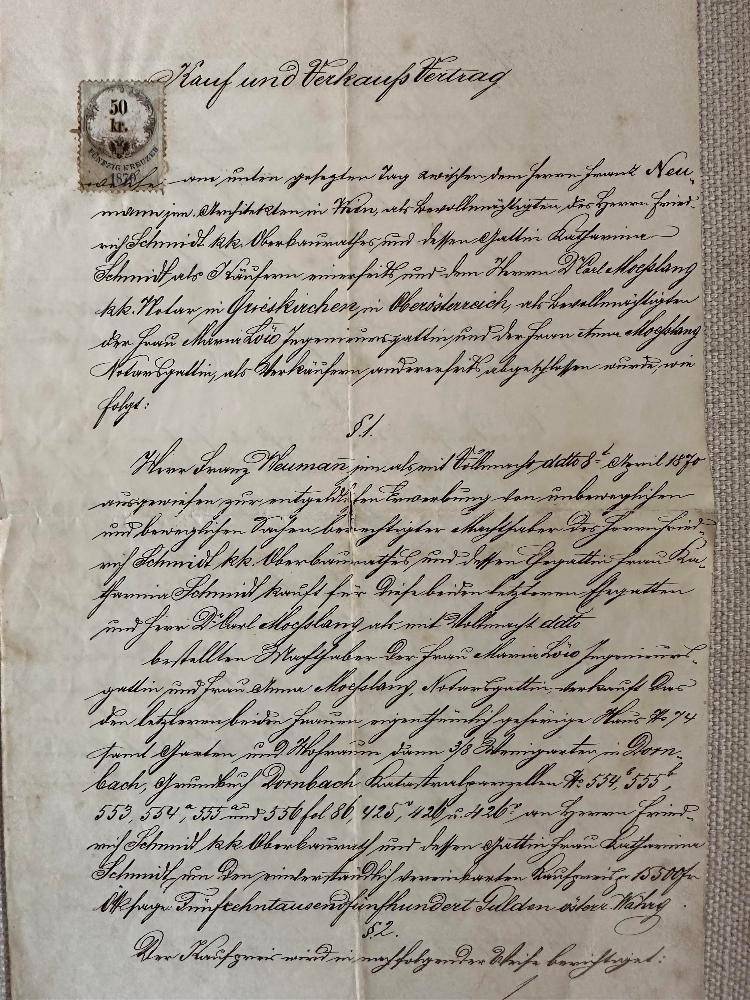 Kauf und Verkaufs Vertrag
50
kr.
FÜNFZIG KREUZER
1870
welcher am unten gesetzten Tag zwischen dem Herrn Franz Neu-
mann jun. Architekten in Wien, als Bevollmächtigten des Herrn Fried-
rich Schmidt kk. Oberbaurathes, und dessen Gattin Katharina
Schmidt, als Käufern einerseits, und dem Herrn Dr Carl Mochslang
kk. Notar in Grieskirchen, in Oberösterreich, als Bevollmächtigten
der Frau Maria Löw Ingenieursgattin, und der Frau Anna Mochslang
Notarsgattin, als Verkäufern andererseits abgeschlossen wurde, wie
folgt:
§. 1.
Herr Franz Neumann jun. als mit Vollmacht ddto 8t April 1870
ausgewiesen zur entgeldlichen Erwerbung von unbeweglichen
und beweglichen Sachen berechtigter Machthaber des Herrn Fried-
rich Schmidt kk. Oberbaurathes und dessen Ehegattin Frau Ka-
tharina Schmidt kauft für diese beiden letzteren Ehegatten
und Herr Dr Carl Mochslang als mit Vollmacht ddto
bestellten Machthaber der Frau Maria Löw Ingenieurs-
gattin und Frau Anna Mochslang, Notarsgattin, verkauft das
den letzteren beiden Frauen eigenthümlich gehörige Haus No 74
samt Garten und Hofraum dann 3/8 Weingarten in Dorn-
bach, Grundbuch Dornbach Katastralparzellen No 554, 555b,
553, 554a, 555a und 556 fol 86, 425, 426 u. 426 an Herrn Fried-
rich Schmidt kk. Oberbaurath und dessen Gattin Frau Katharina
Schmidt, um den einverständlich vereinbarten Kaufpreis 15500 fr
sage Fünfzehntausendfünfhundert Gulden österr. Währg.
§. 2.
Der Kaufpreis wird in nachfolgender Weise berichtiget: